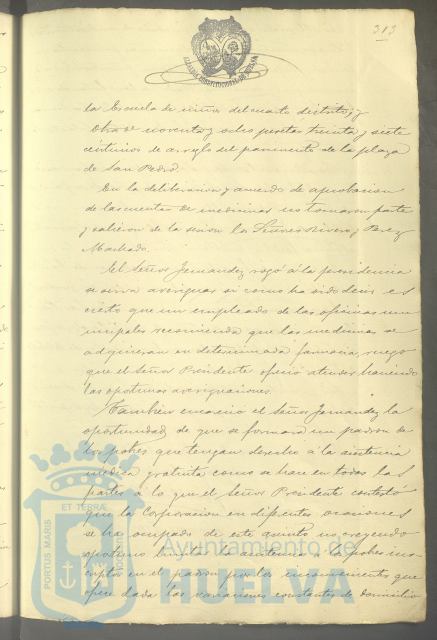 313
la Escuela de niños del cuarto distrito; y
otra de noventa y ocho pesetas treinta y siete
centimos de arreglo del pavimento de la plaza
de San Pedro.
En la deliberacion y acuerdo de aprobacion
de las cuentas de medicinas no tomaron parte
y salieron de la sesion los Señores Rivero y Perez
Machado.
El Señor Jernandez rogó á la presidencia
se sirva averiguar si como ha oido decir es
cierto que un empleado de las oficinas mu
nicipales recomienda que las medicinas se
adquieran en determinada farmacia, ruego
que el Señor Presidente ofreció atender haciendo
las oportunas averiguaciones.
Tambien encareció el Señor Jernandez la
oportunidad de que se formara un padron de
los pobres que tengan derecho á la asistencia
médica gratuita como se hace en todas las
partes á lo que el Señor Presidente contestó
que la Corporacion en diferentes ocasiones
se ha ocupado de este asunto no creyendo
oportuno pobres ins
criptos en el padron por los inconvenientes que
ofrece dada las variaciones constantes de domicilio
PORTUS MARIS
ET TERRÆ
CUSTODIA
Ayuntamiento de
HUELVA